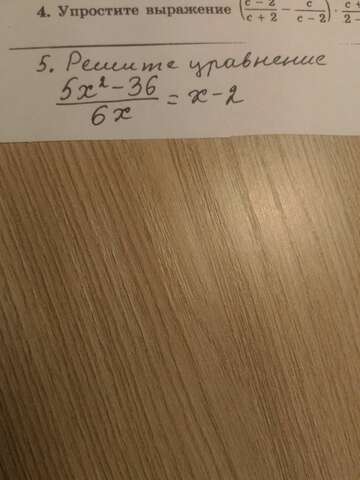 4. Упростите выражение (c − 2 / c + 2 − c / c − 2) · c + / 2 −
5. Решите уравнение
5x² − 36 / 6x = x − 2